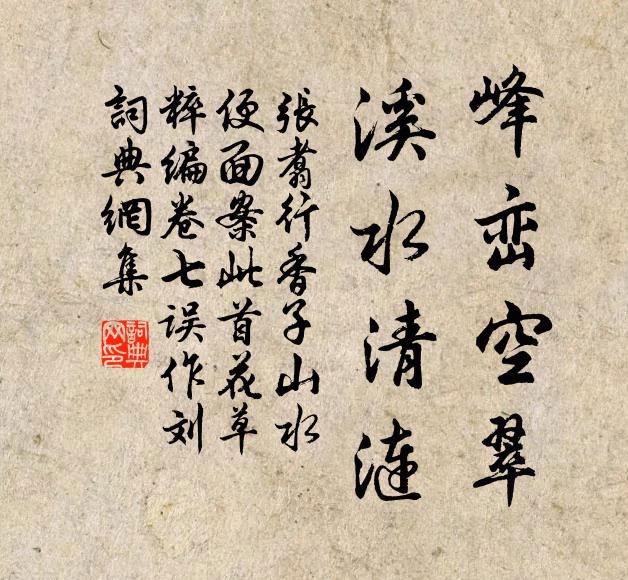 峰峦空翠
溪水清涟
張翥行香子山水
便面案此首花草
粹编卷七误作刘
詞典網集
詞典
网印